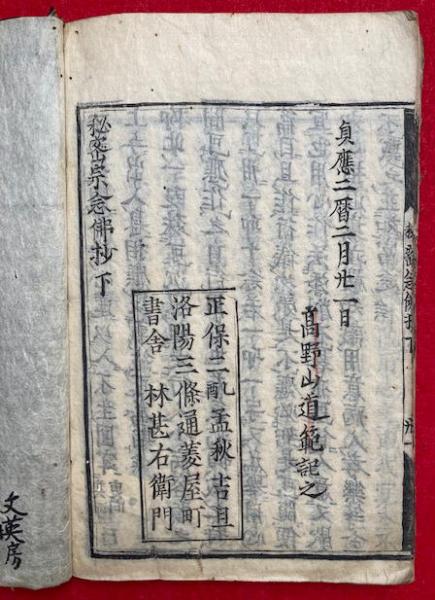 貞應二暦二月廿一日
髙野山道範記之
正保二乙酉孟秋吉旦
洛陽三條通菱屋町
書舎 林甚右衛門
秘密宗念佛抄下
文瑛房